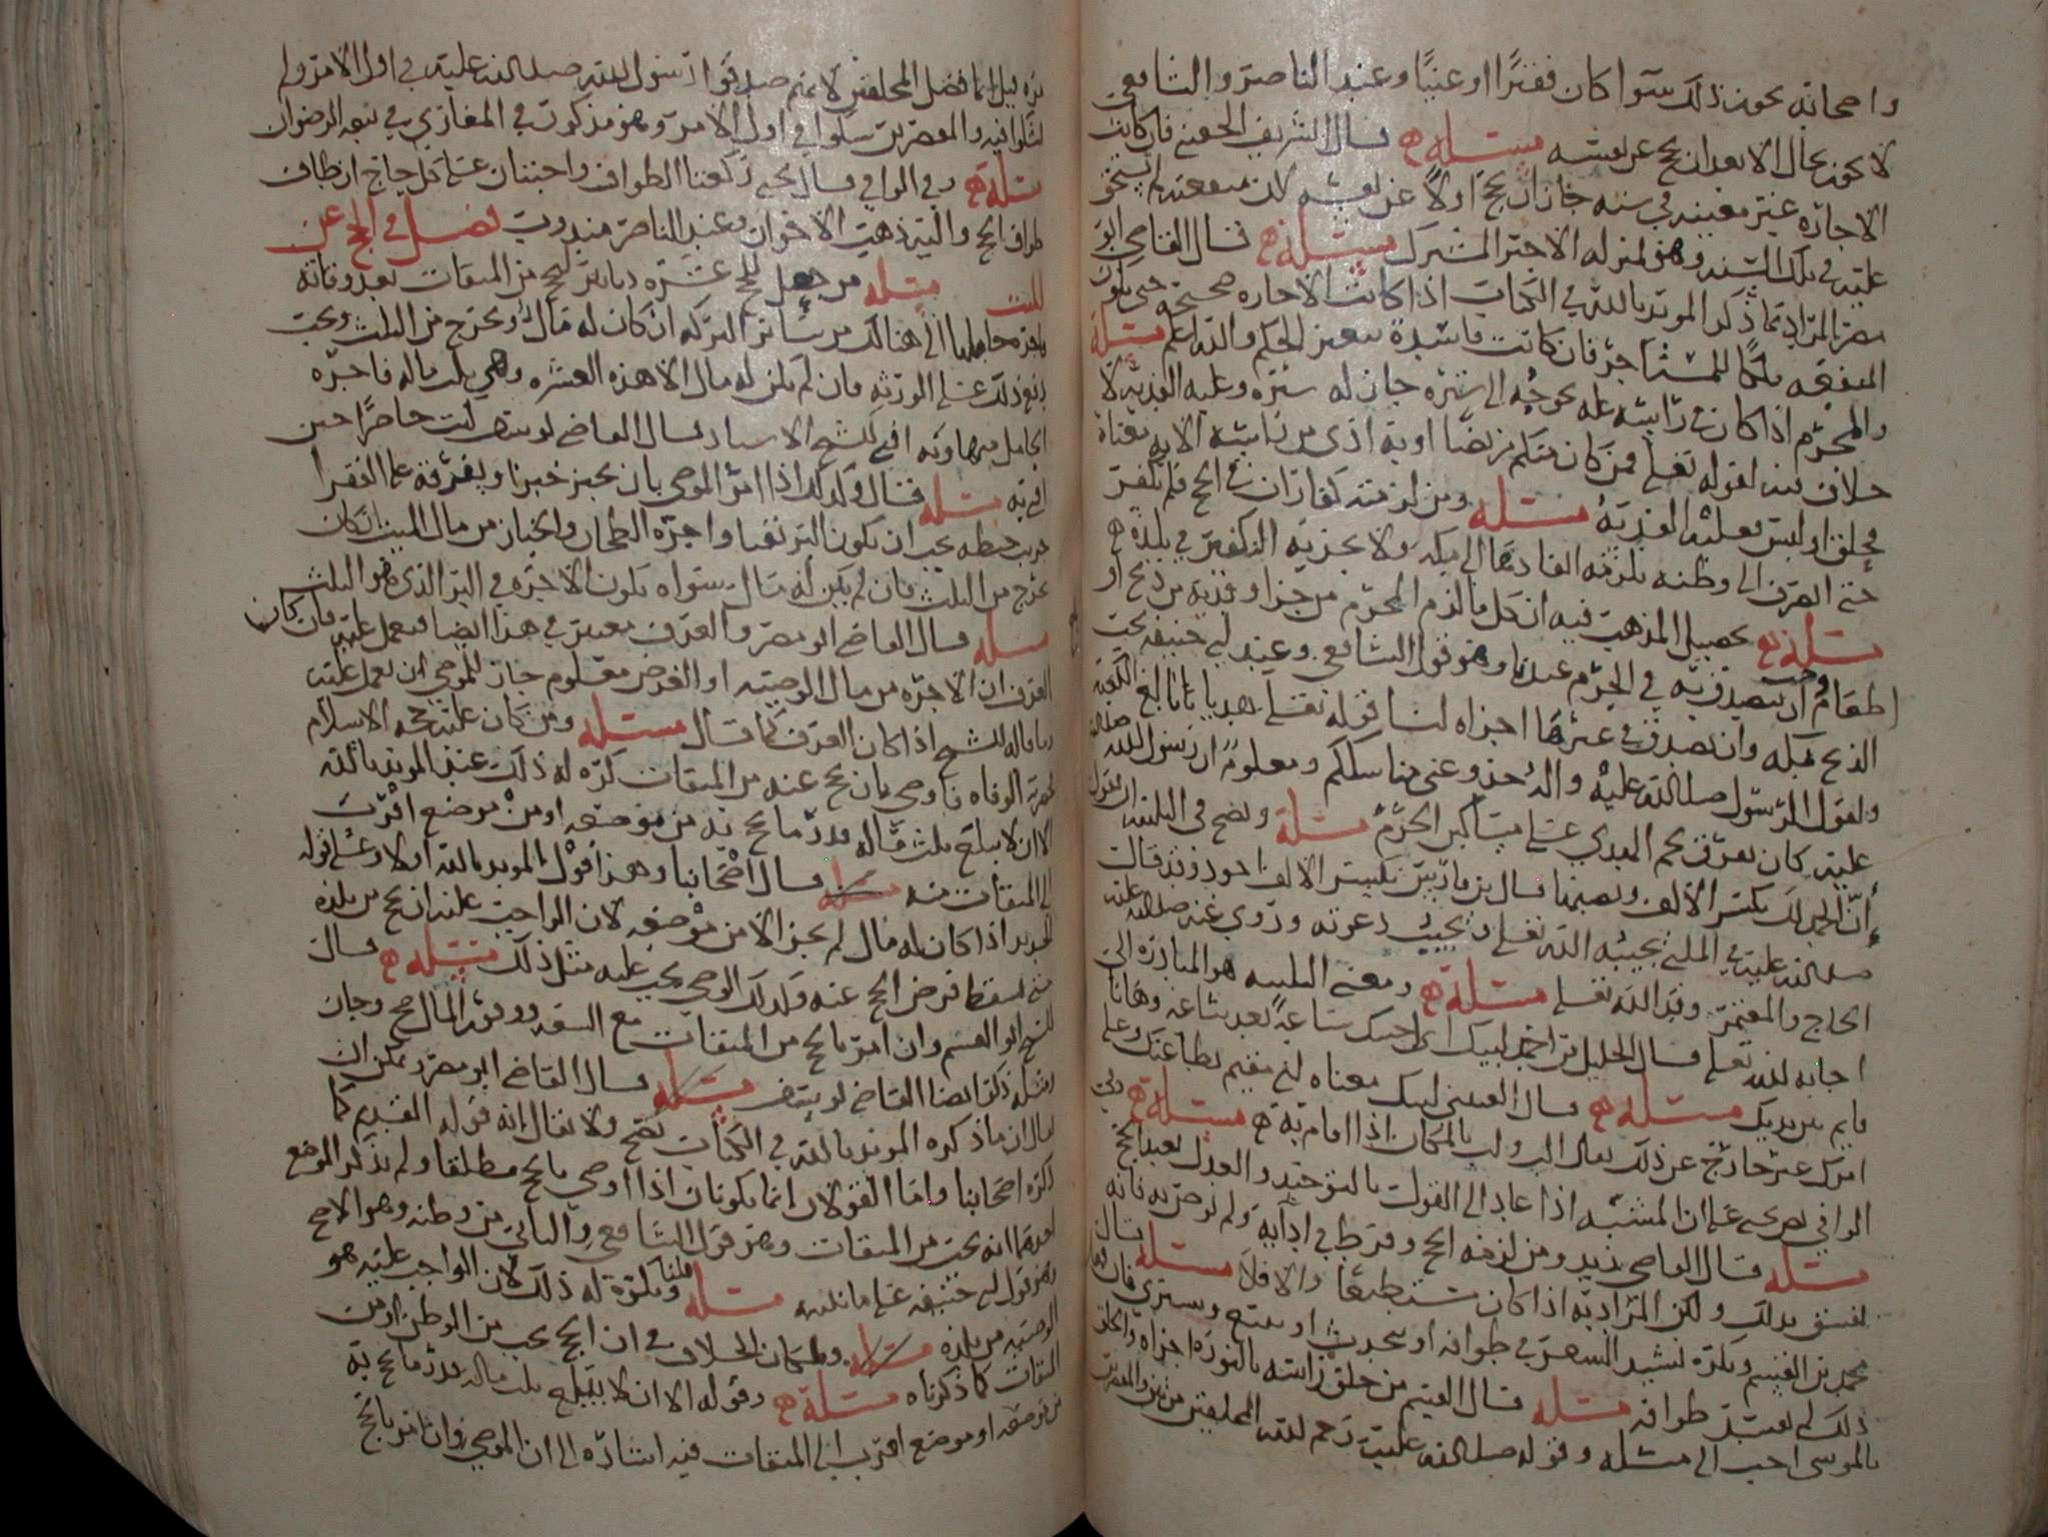 واصحابه يجوز ذلك سوآ كان فقيرًا او غنيًا وعند الناصر والشافعي
لا يجوز بحال الا بعد ان يحج عن نفسه مسئله قال الشريف الحسني فان كانت
الاجاره غير معينه في سنه جاز ان يحج اولاً عن نفسه لان منفعته لم تستحق
عليه في تلك السنه وهو بمنزله الاجير المشترك مسئله قال القاضي ابو
مضر المراد بما ذكر المويد بالله في اذا كانت الاجاره صحيحة حتى تكون
المنفعه ملكًا للمستاجر فان كانت فاسدة تغير الحكم والله اعلم مسئله
والمحرم اذا كان في راسه عله تحوجه الى ستره جاز له ستره وعليه الفديه لا
خلاف فيه لقوله تعالى فمن كان منكم مريضا او به اذى من راسه الايه معناه
فحلق او لبس فعليه الفديةُ مسئله ومن لزمته كفارات في الحج فلم يكفر
حتى انصرف الى وطنه يلزمه انفاذها الى مكه ولا يجزيه التكفير في بلده
مسئله تحصيل المذهب فيه ان كل ما لزم المحرم من جزا وفديه من ذبح او
اطعام وجب ان يتصدق به في الحرم عندنا وهو قول الشافعي وعند ابي حنيفه يجب
الذبح بمكه وان تصدق في غيرها اجزاه لنا قوله تعالى هديا بالغ الكعبه
ولقول الرسول صلى الله عليه وعنى مناسككم ومعلوم ان رسول الله صلى الله
عليه كان يفرق لحم الهدي على مساكين الحرم مسئله ويصح في التلبيه ان يقول
إنّ الحمد لك بكسر الالف ونصبها قال بكسر الالف اجود وقد قال
صلى الله عليه في الملبي يجيبه الله تعالى دعوته وروي عنه صلى الله عليه
الحاج والمعتمر وفد الله تعالى مسئله ومعنى التلبيه هو المبادره الى
اجابه الله تعالى قال الخليل بن احمد لبيك اي اجبتك ساعةً بعد ساعه وهانا
قايم بين يديك مسئله قال القتيبي لبيك معناه اني مقيم بطاعتك وعلى
امرك غير خارج عن ذلك يقال الب ولب بالمكان اذا اقام به مسئله وفي
الوافي ان المشبه اذا عاد الى القول بالتوحيد والعدل يعيد الحج
مسئله قال القاضي زيد ومن لزمه الحج وفرط في ادآيه ولم يوص به فانه
يفسق بذلك ولكن المراد به اذا كان مستطيعا والا فلا مسئله قال
محمد بن القسم ويكره نشيد الشعر في طوافه او يحدث او ويشتري فان فعل
ذلك لم يفسد طوافه مسئله قال القسم من حلق راسه بالنوره اجزاه والحلق
بالموسى احب الي مسئله وقوله صلى الله عليه رحم الله المحلقين مرتين والمقصرين
مره قيل انما فضل المحلقين لانهم صدقوا رسول الله صلى الله عليه في اول الامر ولم
يشكوا فيه والمقصرين شكوا في اول الامر وهو مذكور في المغازي في بيعه الرضوان
مسئله وفي الوافي قال يحيى ركعتا الطواف واجبتان على كل حاج ان طاف
طواف الحج واليه ذهب الاخوان وعند الناصر مندوب فصل في الحج عن
الميت مسئله من جعل للحج عشره دنانير ليحج من الميقات بعد وفاته
فاجره حاملها الى هنالك من سائر التركه ان كان له مال ويخرج من الثلث ويجب
دفع ذلك على الورثه فان لم يكن له مال الا هذه العشره وهي ثلث ماله فاجره
الحامل منها وبه افتى الشيخ الاستاد قال القاضي يوسف كنت حاضرًا حين
افتى به مسئله فقال وكذلك اذا امر الموصي بان يخبز خبزا ويفرقه على الفقرا
يجب ان يكون البر نقيا واجره الطحان والخباز من مال الميت ان كان
يخرج من الثلث فان لم يكن له مال سواه تكون الاجره في البر الذي هو الثلث
مسئله قال القاضي ابو مضر والعرف معتبر في هذا ايضا فيعمل عليه فان كان
العرف ان الاجره من مال الوصيه او الغرض معلوم جاز للوصي ان يعمل عليه
وما قاله الشيخ اذا كان العرف كما قال مسئله ومن كان عليه حجه الاسلام
الوفاه فاوصى بان يحج عنه من الميقات كره له ذلك عند المويد بالله
الا ان لا يبلغ ثلث ماله قدر ما يحج به من موضعه او منْ موضع اقرب
الى الميقات منه مسئله قال اصحابنا وهذا قول المويد بالله اولا وعلى قوله
الجديد اذا كان له مال لم يجز الا من موضعه لان الواجب عليه ان يحج من بلده
حتى يسقط فرض الحج عنه وكذلك الوصي يجب عليه مثل ذلك مسئله قال
الشيخ ابو القسم وان امر بالحج من الميقات مع السعه ووفور المال صح وجاز
ومثله ذكر ايضا القاضي يوسف مسئله قال القاضي ابو مضر ويمكن ان
يقال ان ما ذكره المويد بالله في يصح ولا يقال انه قوله القديم كما
ذكره اصحابنا واما القولان انما يكونان اذا اوصى بالحج مطلقا ولم يذكر الموضع
احدهما انه يجب من الميقات وهو قول الشافعي والثاني من وطنه وهو الاصح
وهو قول ابي حنيفه على ما بلغنيه مسئله قلنا ويكره له ذلك لان الواجب عليه هو
الوصيه من بلده مسئله ولمكان الخلاف في ان الحج يجب من الوطن او من
الميقات كما ذكرناه مسئله وقوله الا ان لا يبلغ ثلث ماله قدر ما يحج به
من موضعه او موضع اقرب الى الميقات فيه اشاره الى ان الموصي وان امر بالحج